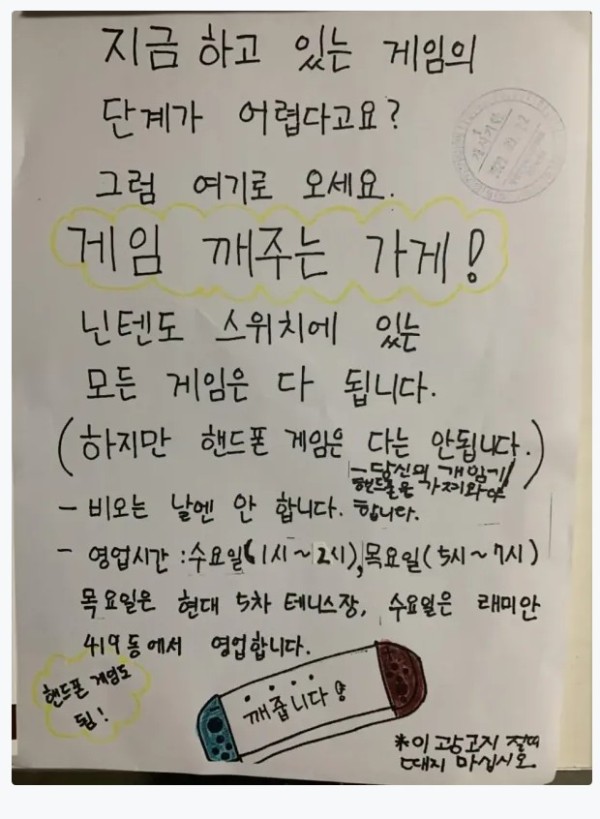 지금 하고 있는 게임의
단계가 어렵다고요?
그럼 여기로 오세요.
게임 깨주는 가게!
닌텐도 스위치에 있는
모든 게임은 다 됩니다.
(하지만 핸드폰 게임은 다는 안됩니다.)
- 당신의 개임기/
핸드폰은 가져와야
합니다.
- 비오는 날엔 안 합니다.
- 영업시간 : 수요일(1시~2시), 목요일(5시~7시)
목요일은 현대 5차 테니스장, 수요일은 래미안
419동에서 영업합니다.
핸드폰 게임도
됨!
깨줍니다!
*이 광고지 절때
때지 마십시오.